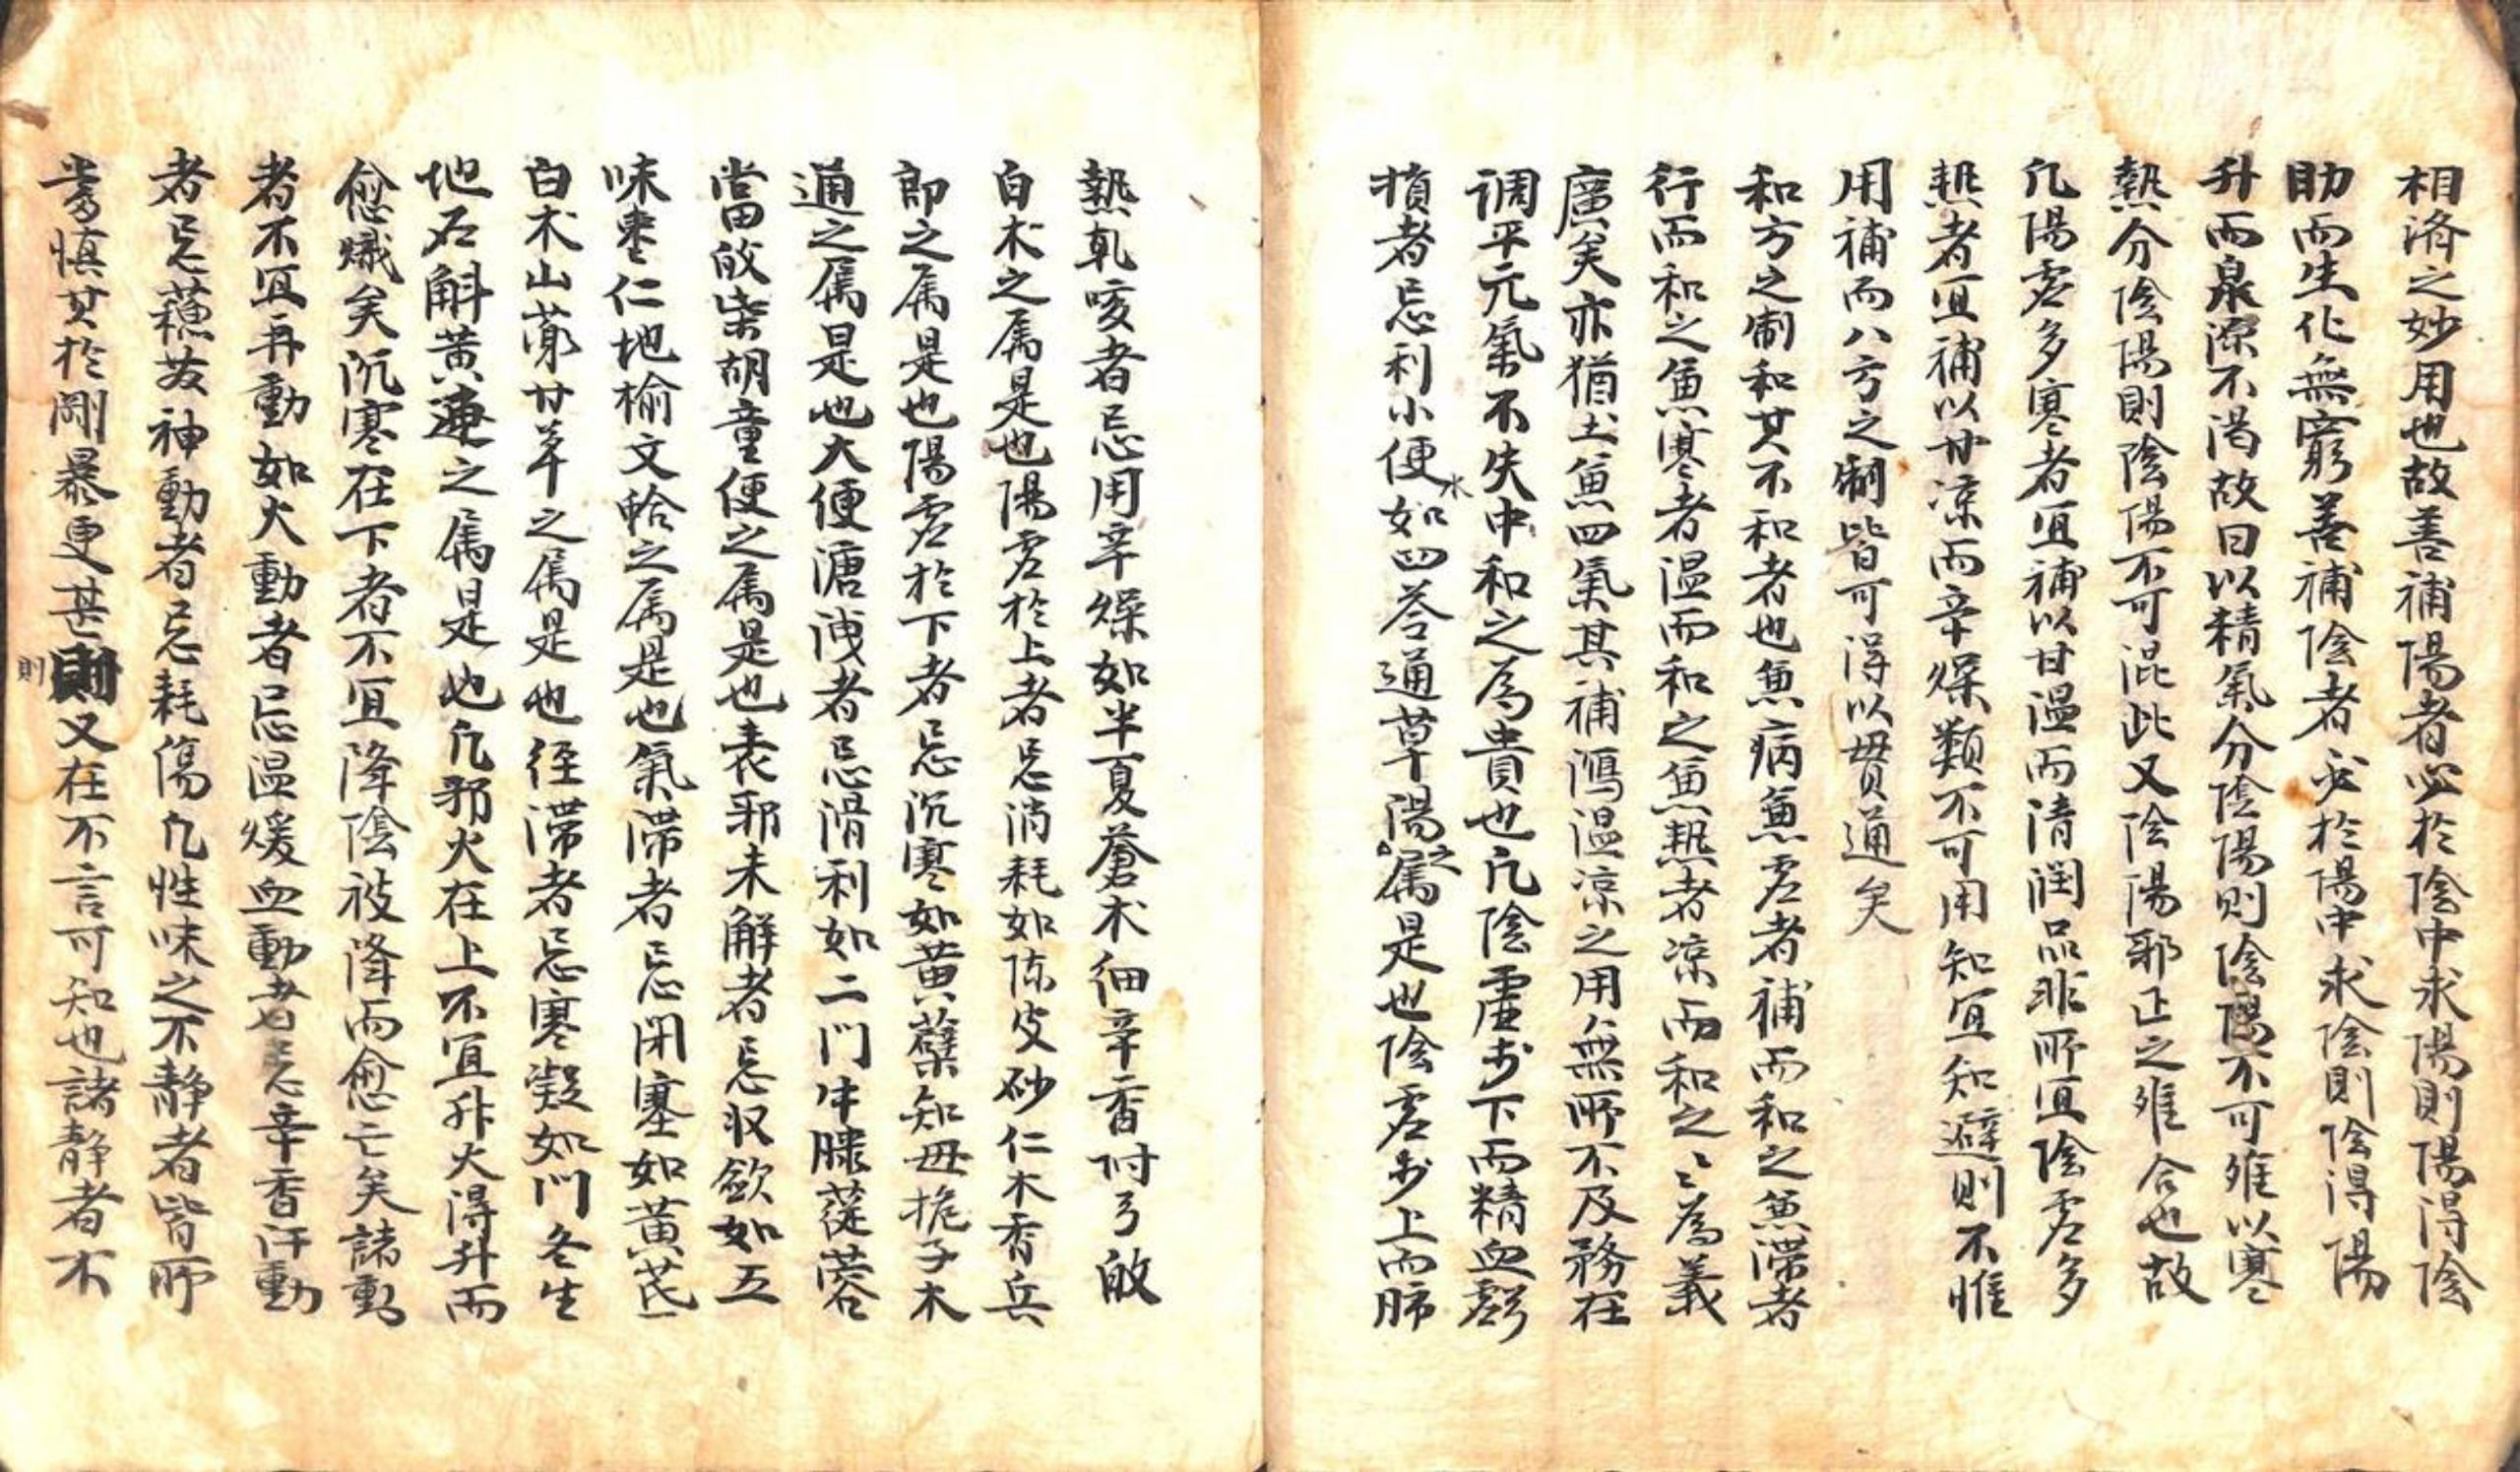 相済之妙用也故善補陽者必於陰中求陽則陽得陰
助而生化無窮善補陰者必於陽中求陰則陰得陽
升而泉源不渴故曰以精氣分陰陽則陰陽不可離以寒
熱分陰陽則陰陽不可混此又陰陽邪正之離合也故
凢陽虚多寒者宜補以甘温而清潤品非所宜陰虚多
熱者宜補以甘凉而辛燥類不可用知宜知避則不惟
用補而八方之制皆可得以貫通矣
和方之制和其不和者也兼病兼虚者補而和之兼滞者
行而和之兼寒者温而和之兼熱者凉而和之〻為義
廣矣亦猶土兼四氣其補瀉温凉之用無所不及務在
調平元氣不失中和之為貴也凢陰虚於下而精血虧
損者忌利小便水如四苓通草湯之属是也陰虚於上而肺
熱乹咳者忌用辛燥如半夏蒼朮細辛香附芎歸
白朮之属是也陽虚於上者忌消耗如陈皮砂仁木香兵
郎之属是也陽虚於下者忌沉寒如黄蘗知母梔子木
通之属是也大便溏洩者忌滑利如二門牛膝蓯蓉
當皈柴胡童便之属是也表邪未解者忌収斂如五
味枣仁地榆文蛤之属是也氣滞者忌閉塞如黄茋
白朮山藥甘草之属是也经滞者忌寒凝如門冬生
地石斛黄連之属是也凢邪火在上不宜升火得升而
愈熾矣沉寒在下者不宜降陰被降而愈亡矣諸動
者不宜再動如火動者忌温煖血動者忌辛香汗動
者忌蘓散神動者忌耗傷凢性味之不静者皆所
當慎其於剛暴更甚則又在不言可知也諸静者不
則